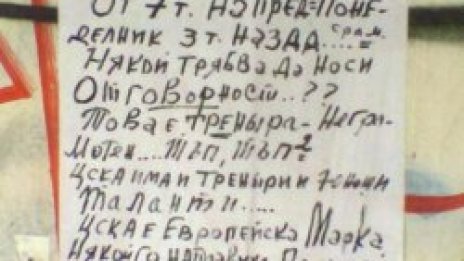 От 7 т. НЗПРЕД=ПОНЕ-
ДЕЛНИК 3 т. НАЗАД... срам....=
НЯКОЙ ТРЯБВА ДА НОСИ
ОТГОВОРНОСТИ..??
ТОВА Е ТРЕНЬРА-НЕГРА-
МОТЕН.... ТЪП, ТЪП²
ЦСКА ИМА И ТРЕНЬРИ И
ТАЛАНТИ.....
ЦСКА Е ЕВРОПЕЙСКА МАРКА
НЯКОЙ ГО